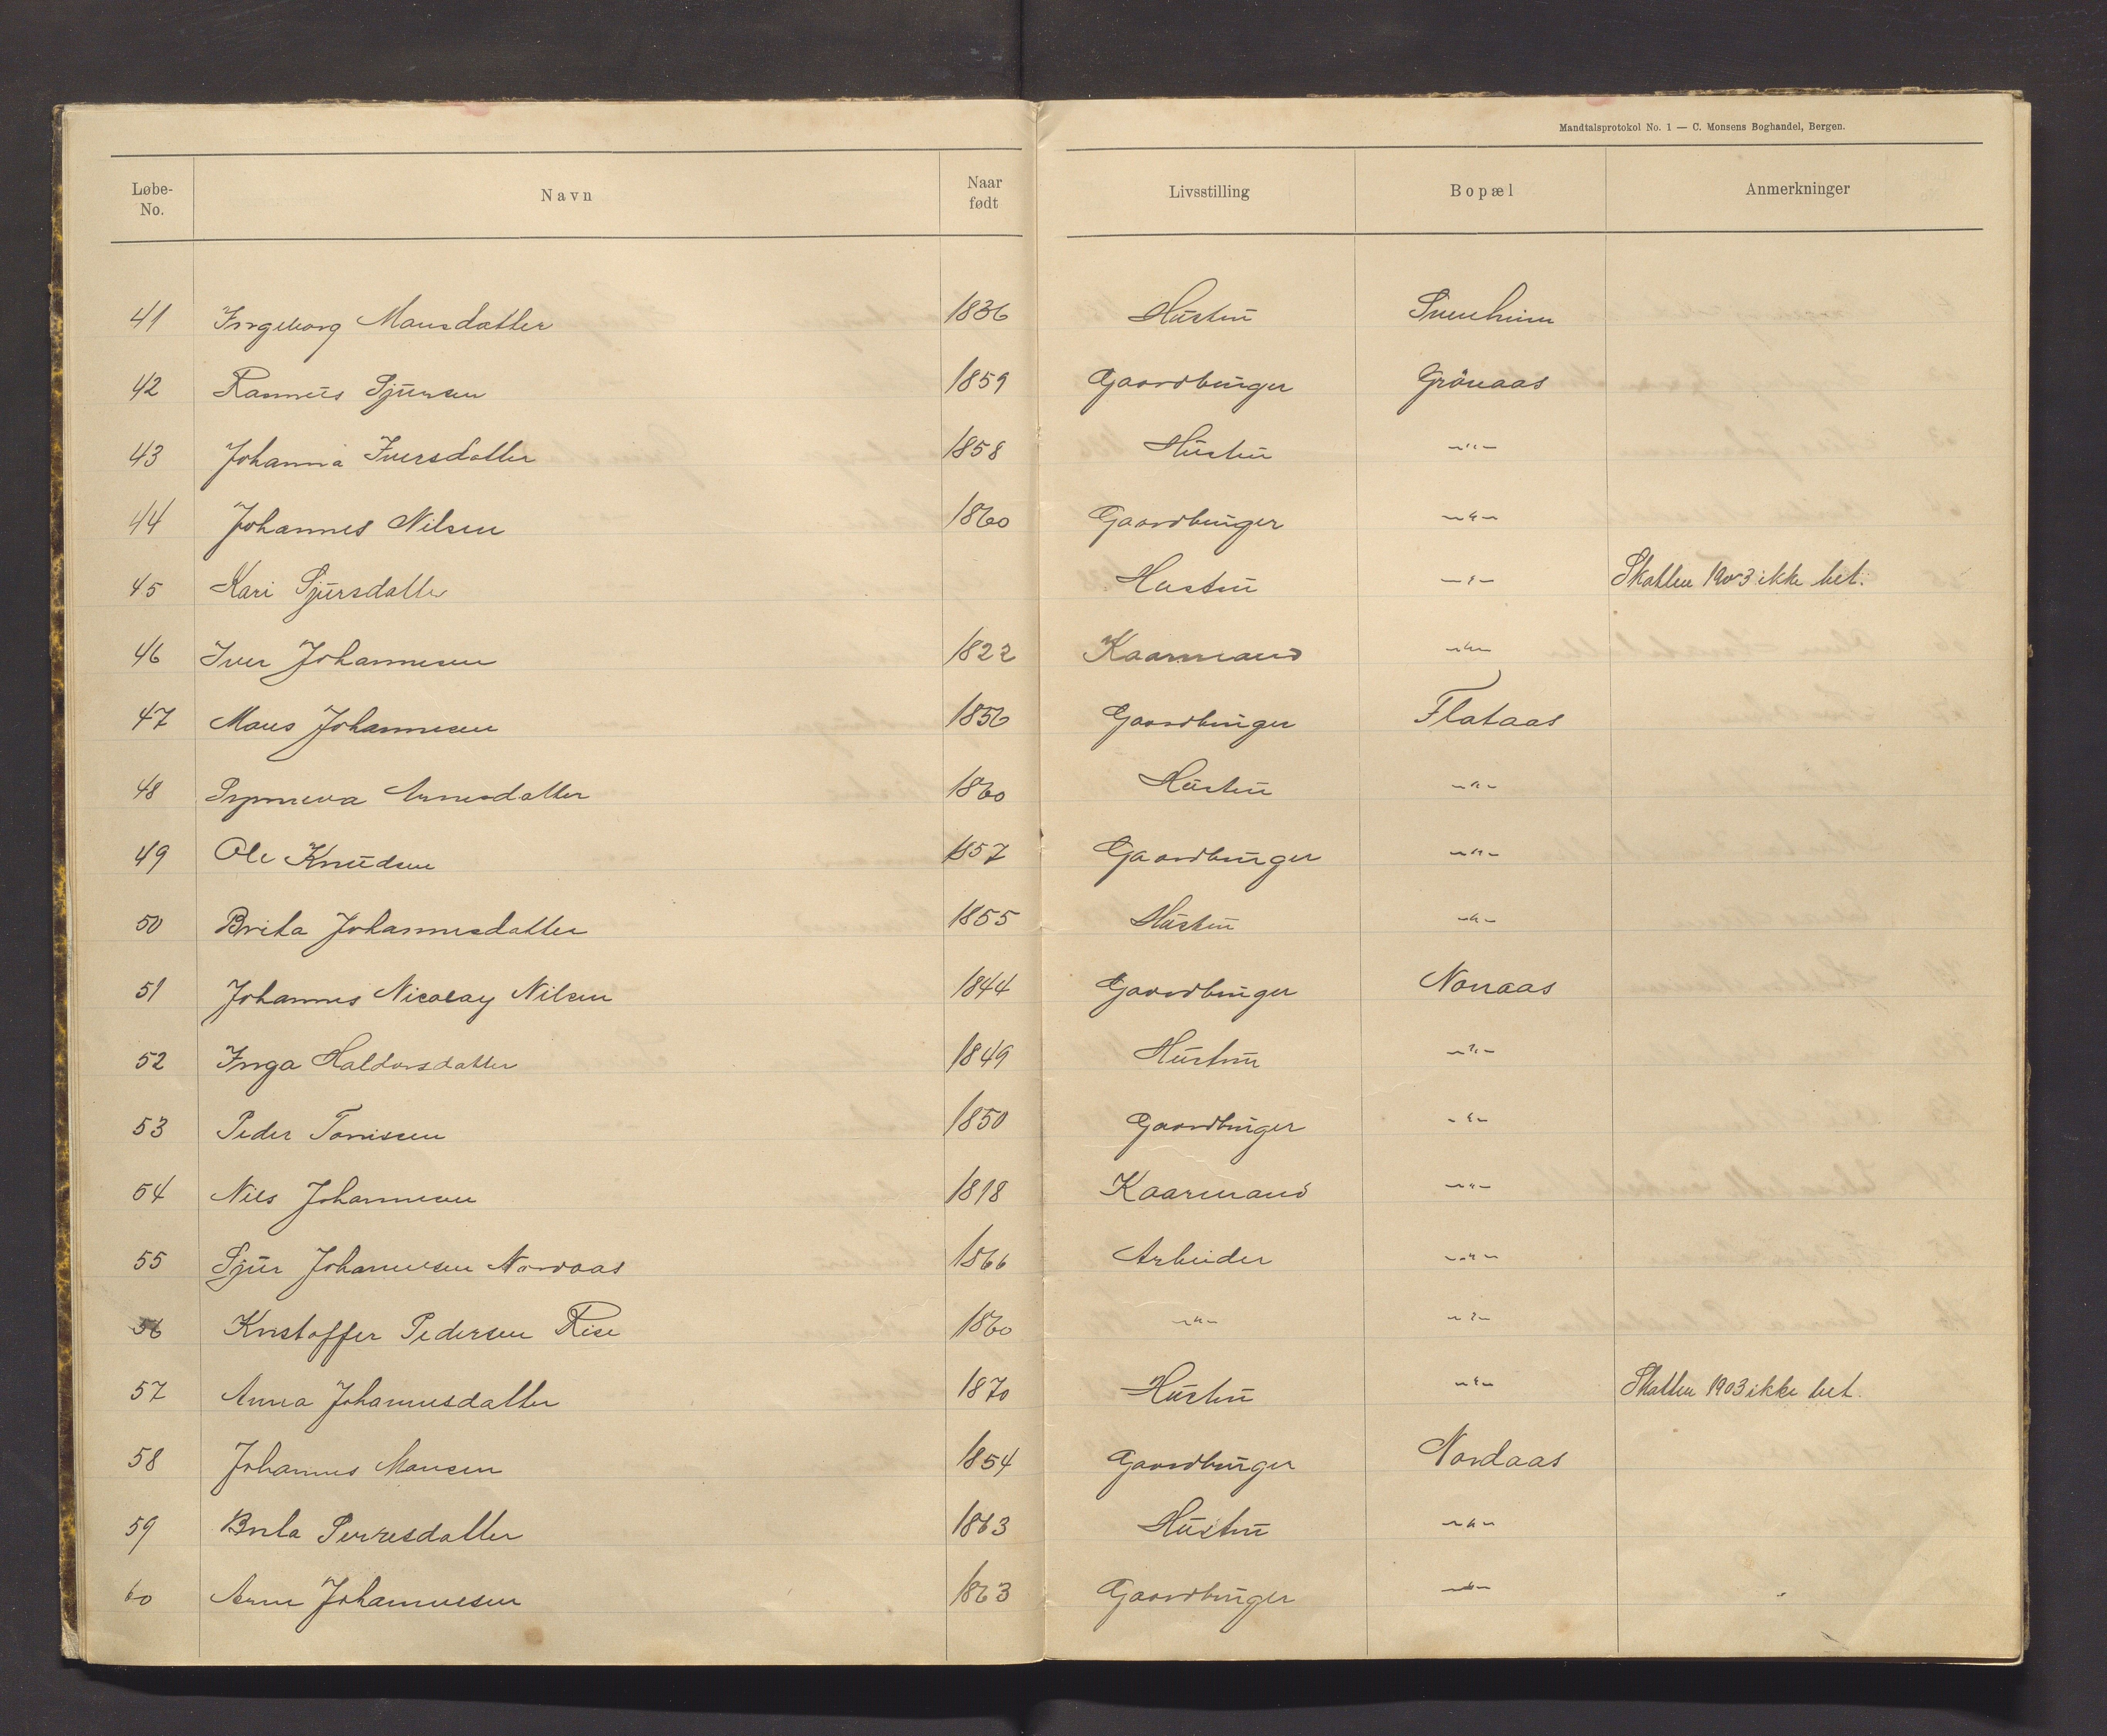 Mandtalsprotokol No. 1 — C. Monsens Boghandel, Bergen.
Løbe-No. Navn Naar født Livsstilling Bopæl Anmerkninger
41 Ingeborg Monsdatter 1836 Hustru
42 Rasmus Sjursen 1859 Gaardbruger Grönaas
43 Johanna Iversdatter 1858 Hustru —"—
44 Johannes Nilsen 1860 Gaardbruger —"—
45 Kari Sjursdatte Hustru —"— Skatten 1903 ikke bet.
46 Iver Johannesen 1822 Kaarmand —"—
47 Mons Johannesen 1856 Gaardbruger Flataas
48 Synneva Arnesdatter 1860 Hustru —"—
49 Ole Knudsen 1857 Gaardbruger —"—
50 Brita Johannesdatter 1855 Hustru —"—
51 Johannes Nicolay Nilsen 1844 Gaardbruger Nonaas
52 Inga Haldorsdatter 1849 Hustru —"—
53 Peder Tonissen 1850 Gaardbruger —"—
54 Nils Johannesen 1818 Kaarmand —"—
55 Sjur Johannesen Nordaas 1866 Arbeider —"—
56 Kristoffer Pedersen Rise 1860 —"— —"—
57 Anna Johannesdatter 1870 Hustru —"— Skatten 1903 ikke bet.
58 Johannes Monsen 1854 Gaardbruger Nordaas
59 Brita 1863 Hustru —"—
60 Arne Johannesen 1863 Gaardbruger —"—